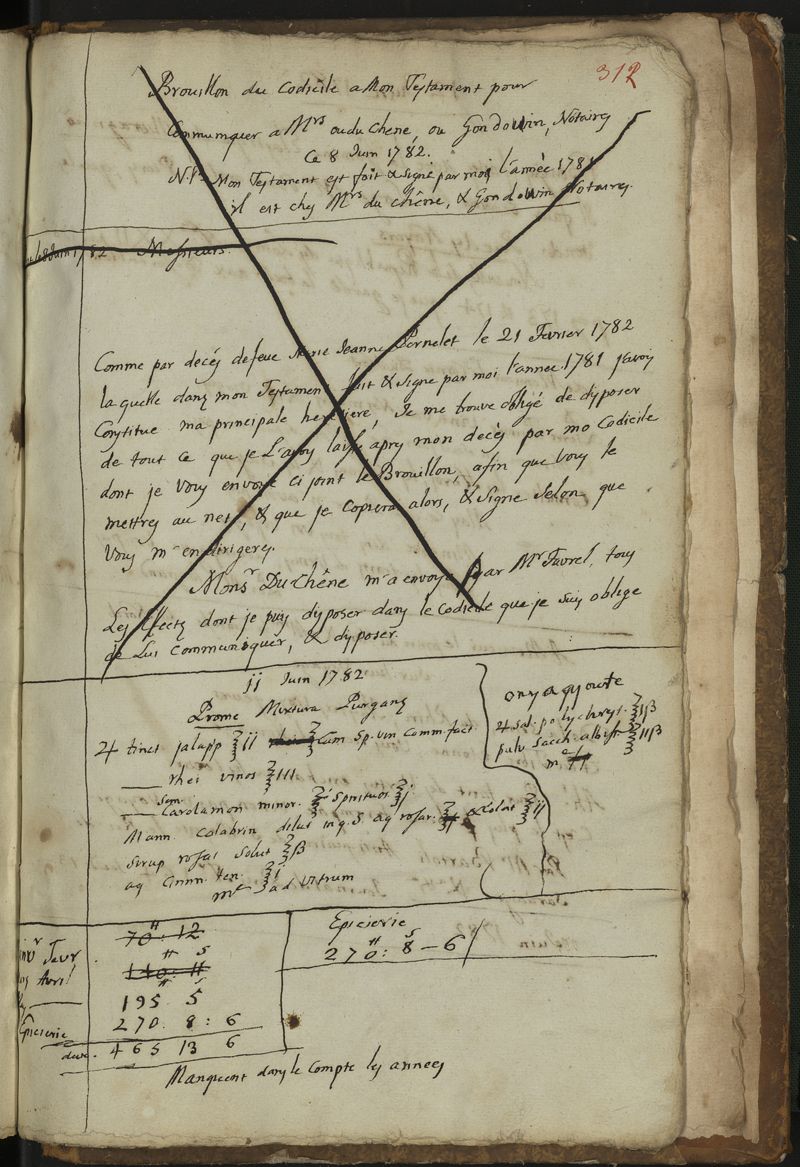 312
Brouillon du Codicile a Mon Testament pour
Communiquer a Mrs ou du Chene, ou Gondouin, Notaires
Ce 8 Juin 1782.
Mon Testament est fait & signé par moi l'année 1781
il est chez Mrs du chêne, & Gondouin Notaires.
le 8 Juin 1782 Messieurs.
Comme par decés defeue Marie Jeanne Pernelet le 21 Fevrier 1782
la quelle dans mon Testament fait & signe par moi l'annee 1781 j'avois
Constitue ma principale heritiere, Je me trouve obligé de disposer
de tout ce que je L'avois laissé apres mon decès par mo Codicile
dont je vous envoye ci joint le Brouillon, afin que vous le
mettres au net, & que je Copierai alors, & signe selon que
vous m'en dirigeres.
Monsr Du Chêne m'a envoyé par Mr Favrel, tous
Les Effects dont je puis disposer dans le Codicile que je suis oblige
de Lui Communiquer, & disposer.
11 Juin 1782
Prome Mixtura Purgans
tinct jalapp ʒii cum sp. vin comm. fact
rhei vinos ʒiii
sem
Cardamon minor. spirituos
Mann Calabrin dilut in q. s. aq rosar. & Colat
Sirup rosat solut ʒß
aq Cinn. ten.
ad vitrum
on y a ajouté
sal. polychrest. ʒiiß
pulv sacch. albiss ʒiiß
70: 12
140: 11
195 5
270. 8: 6
465 13 6
Janvr Fevr
Avril
Epicierie
Epicierie
270: 8 - 6
Manquent dans le Compte les annees